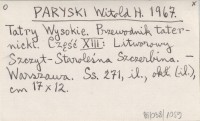 PARYSKI Witold H. 1967.
Tatry Wysokie. Przewodnik tater-
nicki. Część XIII: Litworowy
Szczyt-Staroleśna Szczerbina. -
Warszawa. Ss, 271, il., skł (il.),
cm 17 x 12.